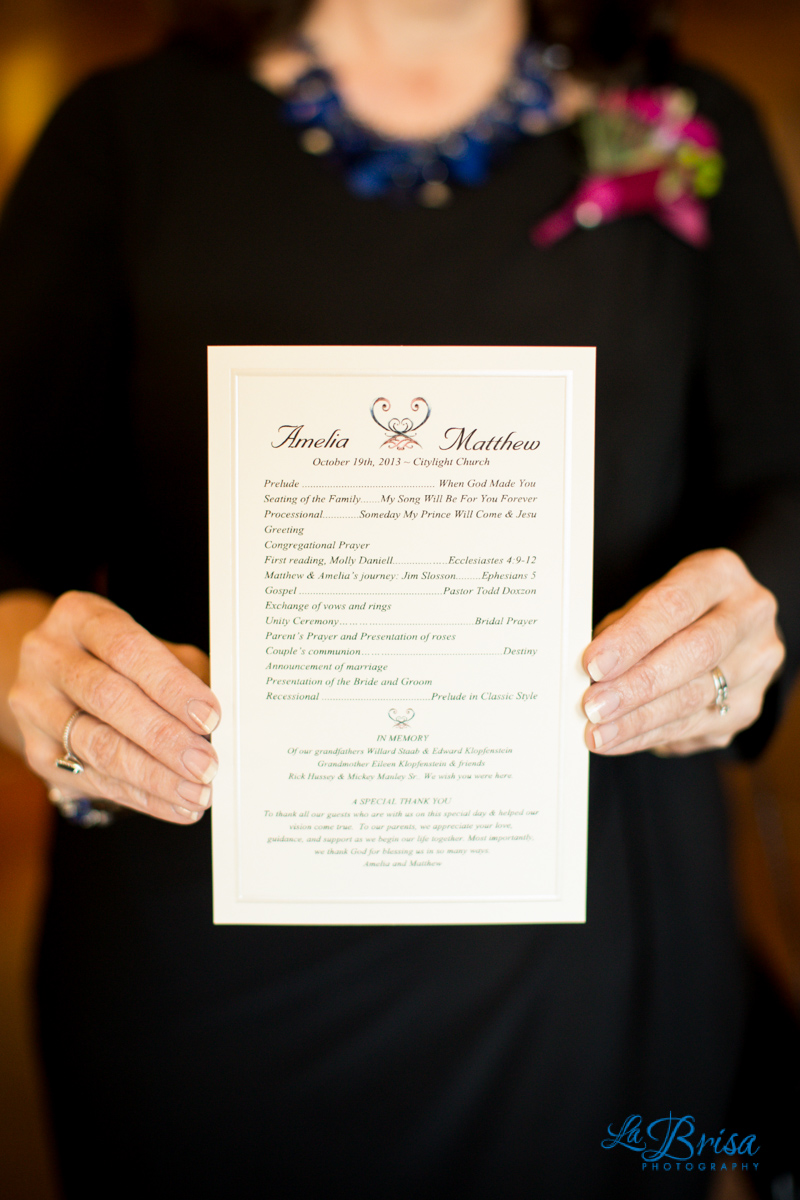 Amelia Matthew
October 19th, 2013 ~ Citylight Church
Prelude ................................................ When God Made You
Seating of the Family.......My Song Will Be For You Forever
Processional.............Someday My Prince Will Come & Jesu
Greeting
Congregational Prayer
First reading, Molly Daniell....................Ecclesiastes 4:9-12
Matthew & Amelia's journey: Jim Slosson.........Ephesians 5
Gospel ....................................................Pastor Todd Doxzon
Exchange of vows and rings
Unity Ceremony.................................................Bridal Prayer
Parent's Prayer and Presentation of roses
Couple's communion....................................................Destiny
Announcement of marriage
Presentation of the Bride and Groom
Recessional ........................................Prelude in Classic Style
IN MEMORY
Of our grandfathers Willard Staab & Edward Klopfenstein
Grandmother Eileen Klopfenstein & friends
Rick Hussey & Mickey Manley Sr. We wish you were here.
A SPECIAL THANK YOU
To thank all our guests who are with us on this special day & helped our
vision come true. To our parents, we appreciate your love,
guidance, and support as we begin our life together. Most importantly,
we thank God for blessing us in so many ways.
Amelia and Matthew
La Brisa
PHOTOGRAPHY